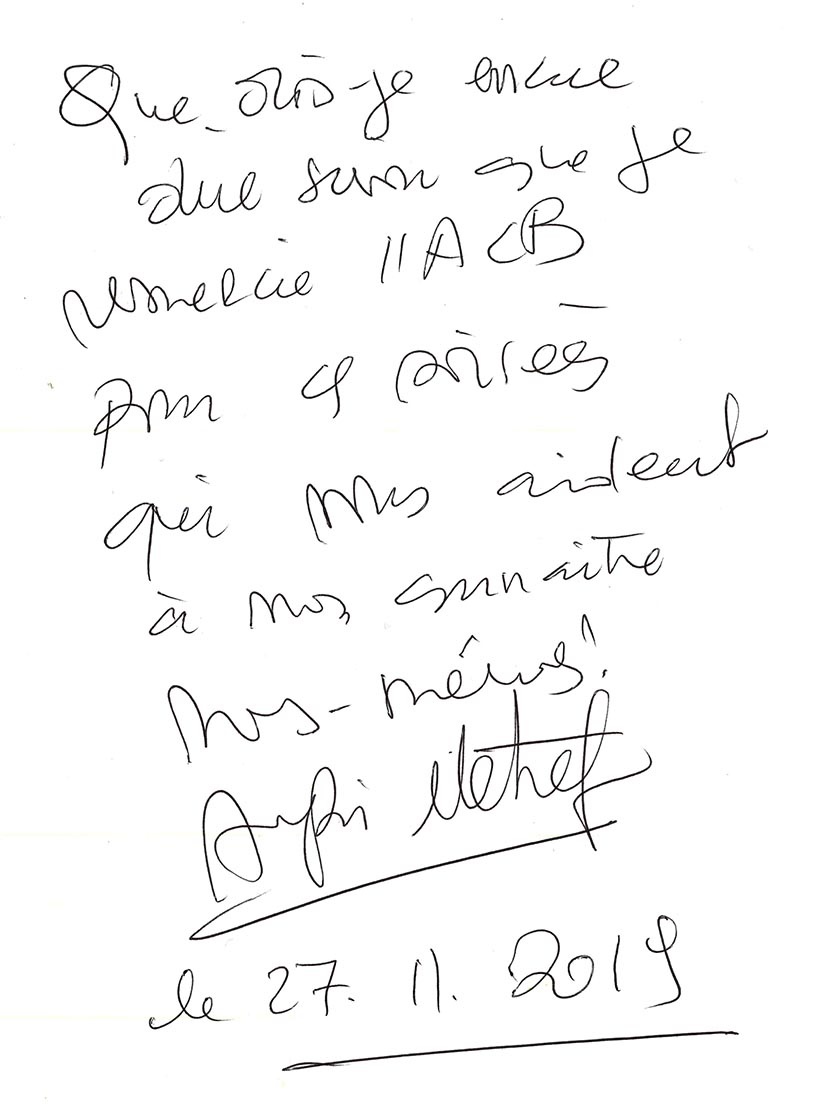 Que dois-je encore
dire sinon que je
remercie l'ACB
pour ces soirées
qui nous aident
à nous connaître
nous-mêmes!
Arezki Metref
le 27. 11. 2019